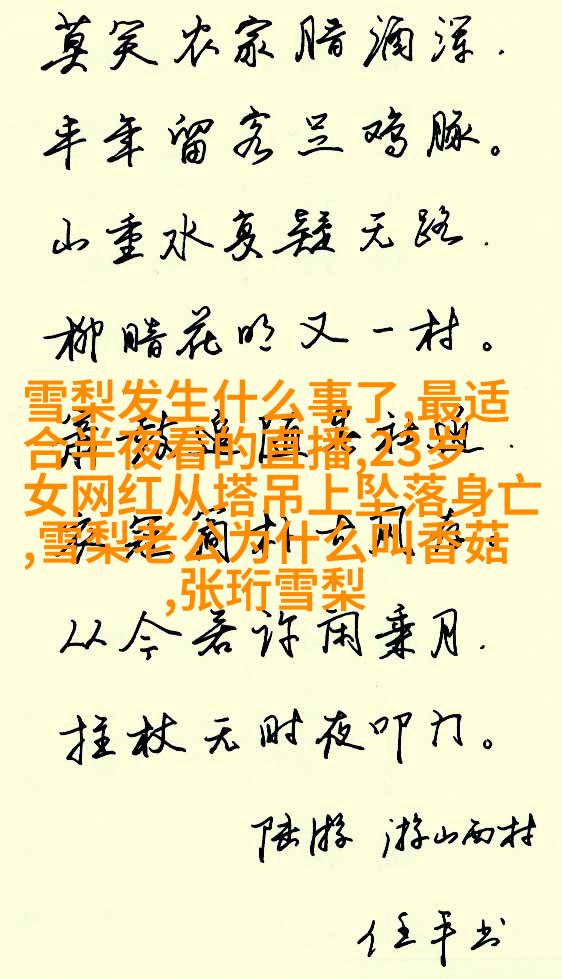 莫笑农家腊酒浑.
丰年留客足鸡豚。
山重水复疑无路.
柳暗花明又一村。
雪梨发生什么事了,最适
合半夜看的直播,23岁
女网红从塔吊上坠落身亡
,雪梨老公为什么叫香菇
,张珩雪梨
从今若许闲乘月.
拄杖无时夜叩门。
陆游 游山西村
任平书